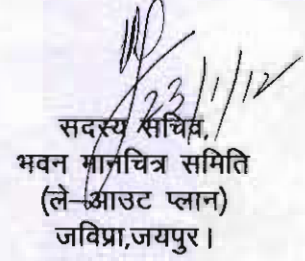 23/1/12
सदस्य सचिव,
भवन मानचित्र समिति
(ले-आउट प्लान)
जविप्रा,जयपुर।